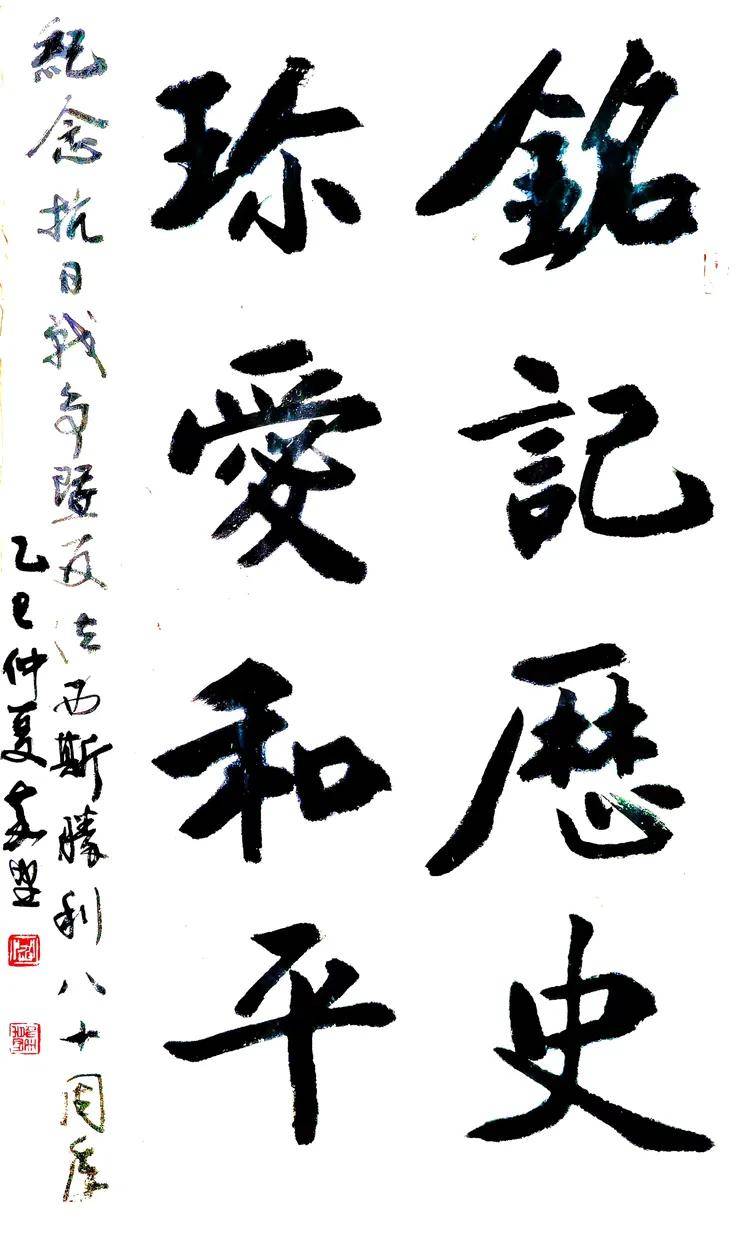 銘記歷史
珍愛和平
紀念抗日戰爭暨反法西斯勝利八十周年
乙巳仲夏